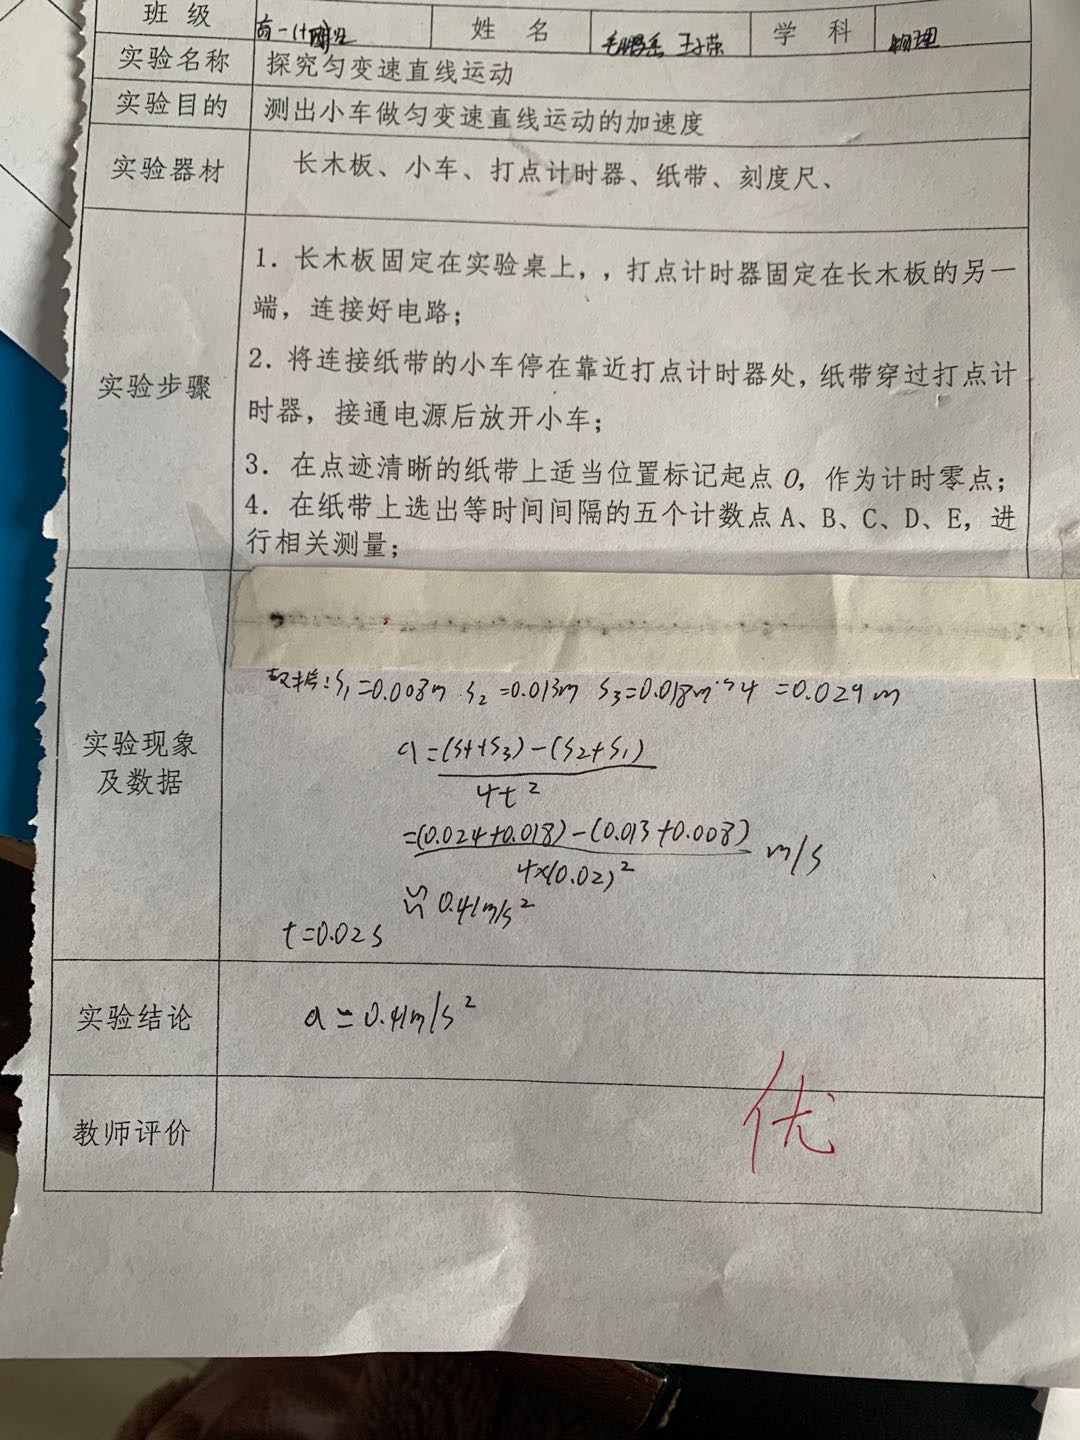 班 级 姓 名 学 科 物理
实验名称 探究匀变速直线运动
实验目的 测出小车做匀变速直线运动的加速度
实验器材 长木板、小车、打点计时器、纸带、刻度尺、
实验步骤
1. 长木板固定在实验桌上，，打点计时器固定在长木板的另一
端，连接好电路；
2. 将连接纸带的小车停在靠近打点计时器处，纸带穿过打点计
时器，接通电源后放开小车；
3. 在点迹清晰的纸带上适当位置标记起点 O，作为计时零点；
4. 在纸带上选出等时间间隔的五个计数点 A、B、C、D、E，进
行相关测量；
实验现象
及数据
数据：S₁=0.008m S₂=0.013m S₃=0.018m S4=0.029m
a=(S4+S₃)-(S₂+S₁)
4t²
=(0.024+0.018)-(0.013+0.008) m/s
4×(0.02)²
≈0.41m/s²
t=0.02s
实验结论 a=0.41m/s²
教师评价 优